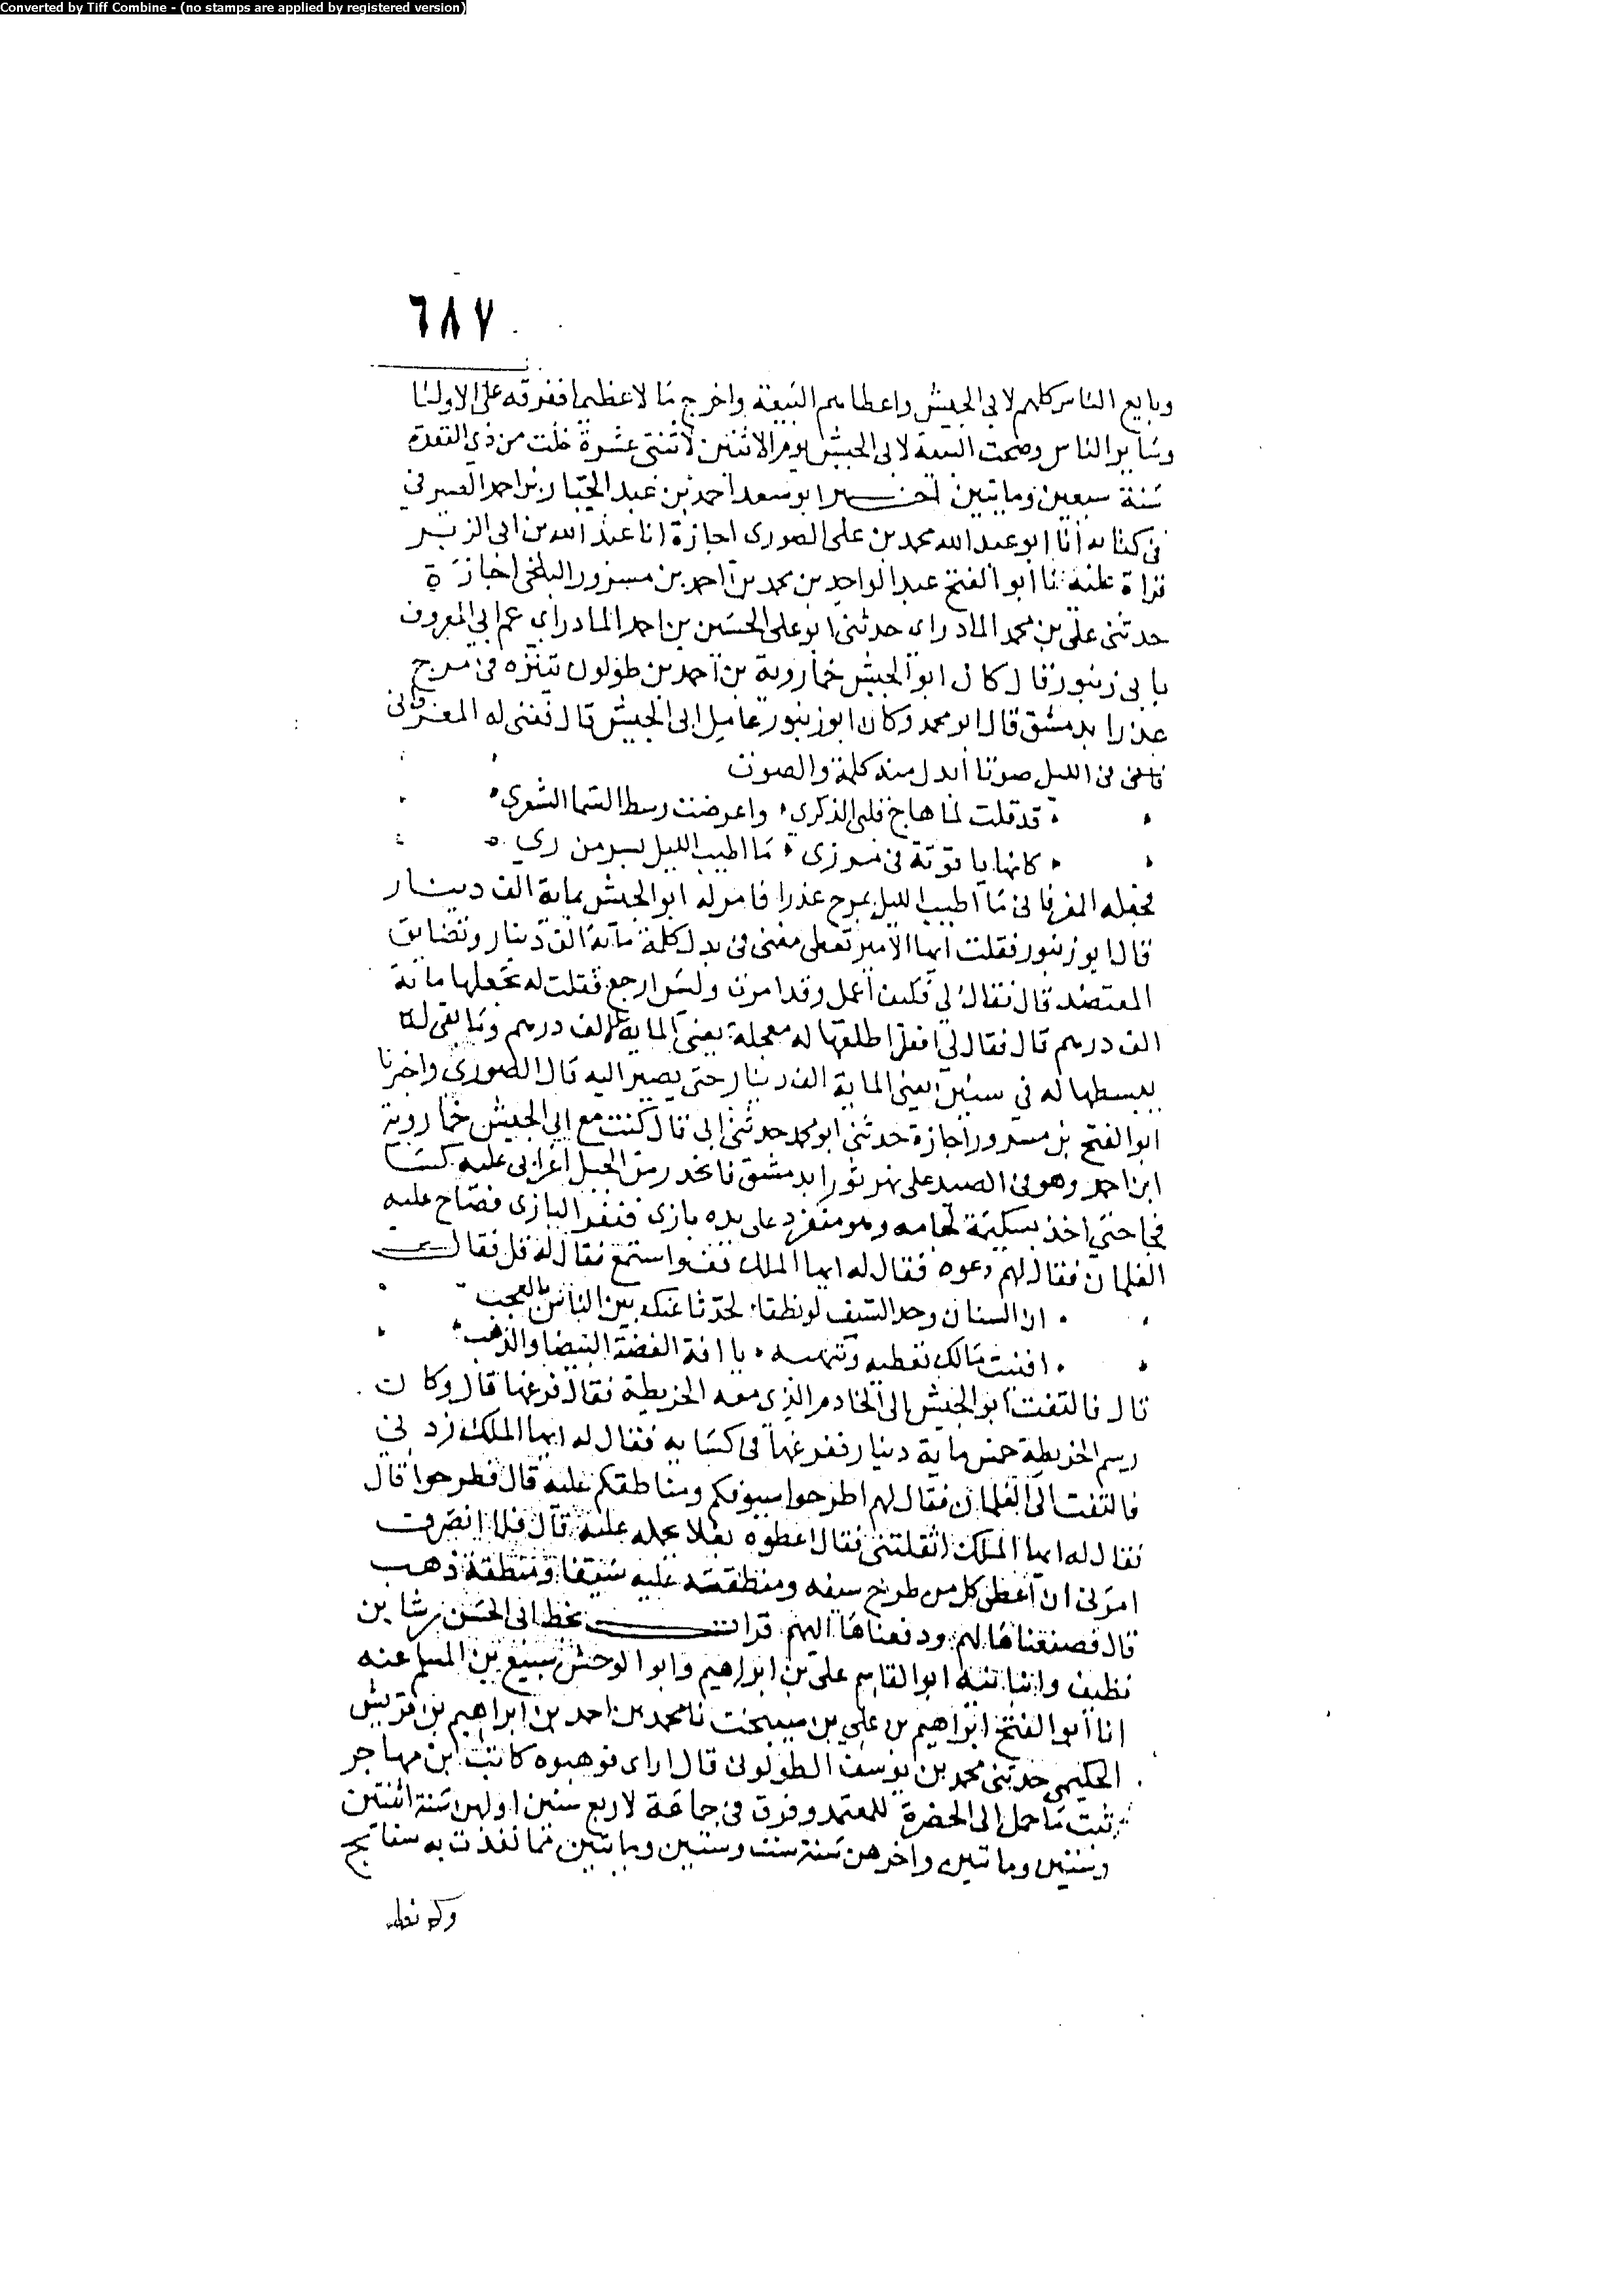 Converted by Tiff Combine - (no stamps are applied by registered version)
٦٨٧
وبايع الناس كلهم لابي الجيش واعطاهم البيعة واخرج مالا عظيما ففرقه على الاوليا
وسائر الناس وصحت البيعة لابي الجيش يوم الاثنين لاثنتي عشرة خلت من ذي القعدة
سنة سبعين ومايتين اخبرنا ابو سعد احمد بن عبد الجبار بن احمد الصيرفي
في كتابه انا ابو عبد الله محمد بن علي الصوري اجازة انا عبد الله بن ابي الزبير
قراة عليه نا ابو الفتح عبد الواحد بن محمد بن احمد بن مسرور البلخي اجازة
حدثني علي بن محمد المادراي حدثني ابو علي الحسين بن احمد المادراي عم ابي المعروف
بابي زنبور قال كان ابو الجيش خمارويه بن احمد بن طولون يتنزه في مرج
عذرا بدمشق قال ابو محمد وكان ابو زنبور عامل ابي الجيش قال فغنى له المغرفاني
في الليل صوتا ابدل منه كلمة والصوت
قد قلت لما هاج قلبي الذكرى واعرضت وسط السما الشعرى
كانها ياقوتة في مدرى ما اطيب الليل بسر من رى
فجعله المغرفاني ما اطيب الليل بمرج عذرا فامر له ابو الجيش بماية الف دينار
قال ابو زنبور فقلت ايها الامير تعطي مغني في بدل كلمة ماية الف دينار وتضايق
المعتضد قال فقال لي فكيف اعمل وقد امرت ولست ارجع فقلت له تجعلها ماية
الف درهم قال فقال لي افعل اطلقها له معجلة يعني الماية الف درهم وما بقي له
يبسطها له في سنين يعني الماية الف دينار حتى يصير اليه قال الصوري واخبرنا
ابو الفتح بن مسرور اجازة حدثني ابو محمد حدثني ابي قال كنت مع ابي الجيش خمارويه
ابن احمد وهو في الصيد على نهر ثورا بدمشق فانحدر من الجبل اعرابي عليه كسا
فجا حتى اخذ بسكيمة لجامه وهو منفرد على يده بازي فنفر البازي فصاح عليه
الغلمان فقال لهم دعوه فقال له ايها الملك قف واستمع فقال له قل فقال
ان السنان وحد السيف لو نطقا لحدثا عنك بين الناس بالعجب
افنيت مالك تعطيه وتنهبه يا افة الفضة البيضا والذهب
قال فالتفت ابو الجيش الى الخادم الذي معه الخريطة فقال فرغها قال وكان
رسم الخريطة خمس ماية دينار ففرغها في كسايه فقال له ايها الملك زدني
فالتفت الى الغلمان فقال لهم اطرحوا سيوفكم ومناطقكم عليه قال فطرحوا قال
فقال له ايها الملك اثقلتني فقال اعطوه بغلا يحمله عليه قال فلما انصرفت
امرني ان اعطي كل من طرح سيفه ومنطقته عليه سيفا ومنطقة ذهب
قال فصنعناها لهم ودفعناها اليهم قرات بخط ابي الحسن رشا بن
نظيف وانبانيه ابو القاسم علي بن ابراهيم وابو الوحش سبيع بن المسلم عنه
انا ابو الفتح ابراهيم بن علي بن سيبخت نا محمد بن احمد بن ابراهيم بن قريش
الحكيمي حدثني محمد بن يوسف الطولوني قال اراني نوهبوه كاتب ابن مهاجر
ثبت ما حمل الى الحضرة للمعتمد وفرق في جماعة لاربع سنين اولهن سنة اثنتين
وستين وماتين واخرهن سنة ست وستين ومايتين مما نفذت به سفاتج